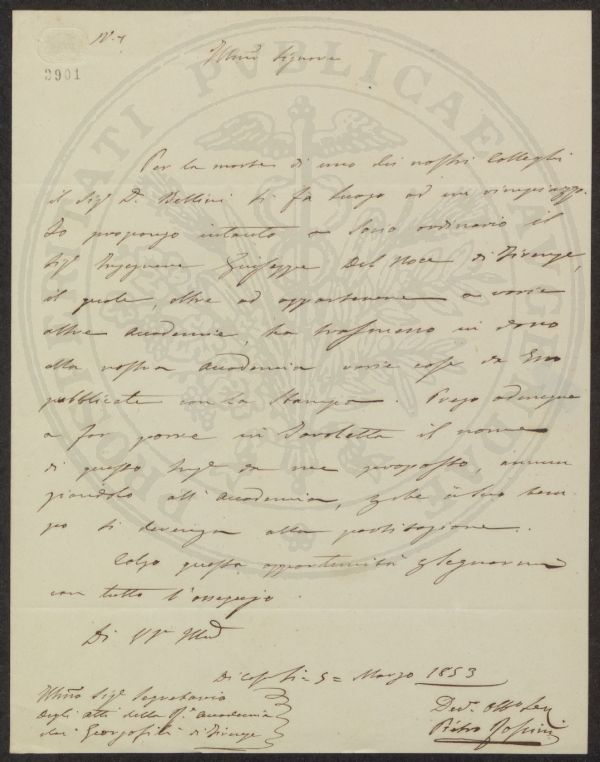 IV.
2901
Illmo Signore
Per la morte di uno dei nostri Colleghi
il Sigr. D. Bellini si fa luogo ad un rimpiazzo.
Io propongo intanto a Socio ordinario il
Sigr. Ingegnere Giuseppe Del Noce di Firenze,
il quale, oltre ad appartenere a varie
altre Accademie, ha trasmesso in dono
alla nostra Accademia varie cose da Esso
pubblicate con la Stampa. Prego adunque
a far porre in Tavoletta il nome
di questo Ingr. da me proposto, annun
ziandolo all'Accademia, onde a suo tem-
po si devenga alla partitazione.
Colgo questa opportunità segnarmi
con tutto l'ossequio.
Di VS Illma
Di 5 = Marzo 1853
Illmo Sigr. Segretario
degli atti della R. Accademia
dei Georgofili di Firenze
Dev. Obb. Ser.
Pietro
PROSPERITATI PUBLICAE AUGENDAE